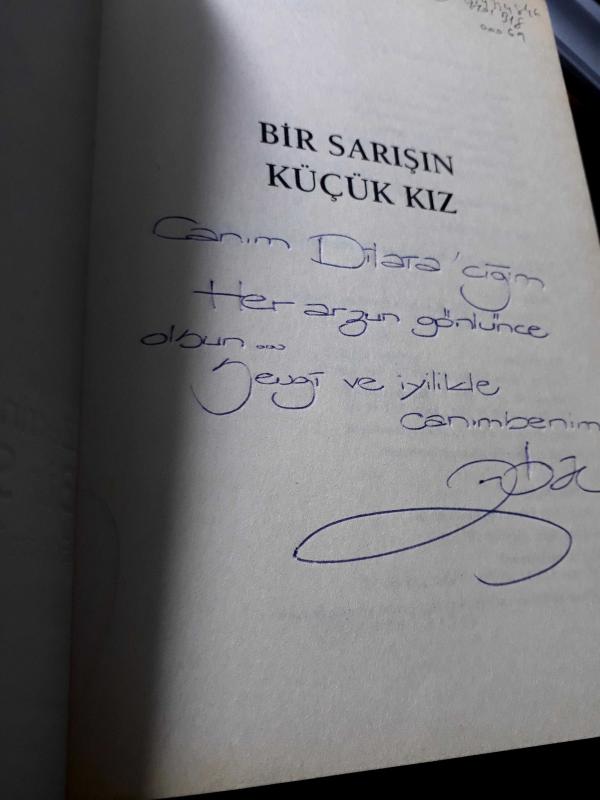 BİR SARIŞIN
KÜÇÜK KIZ
Canım Dilara'cığım
Her arzun gönlünce
olsun...
Sevgi ve iyilikle
canımbenim